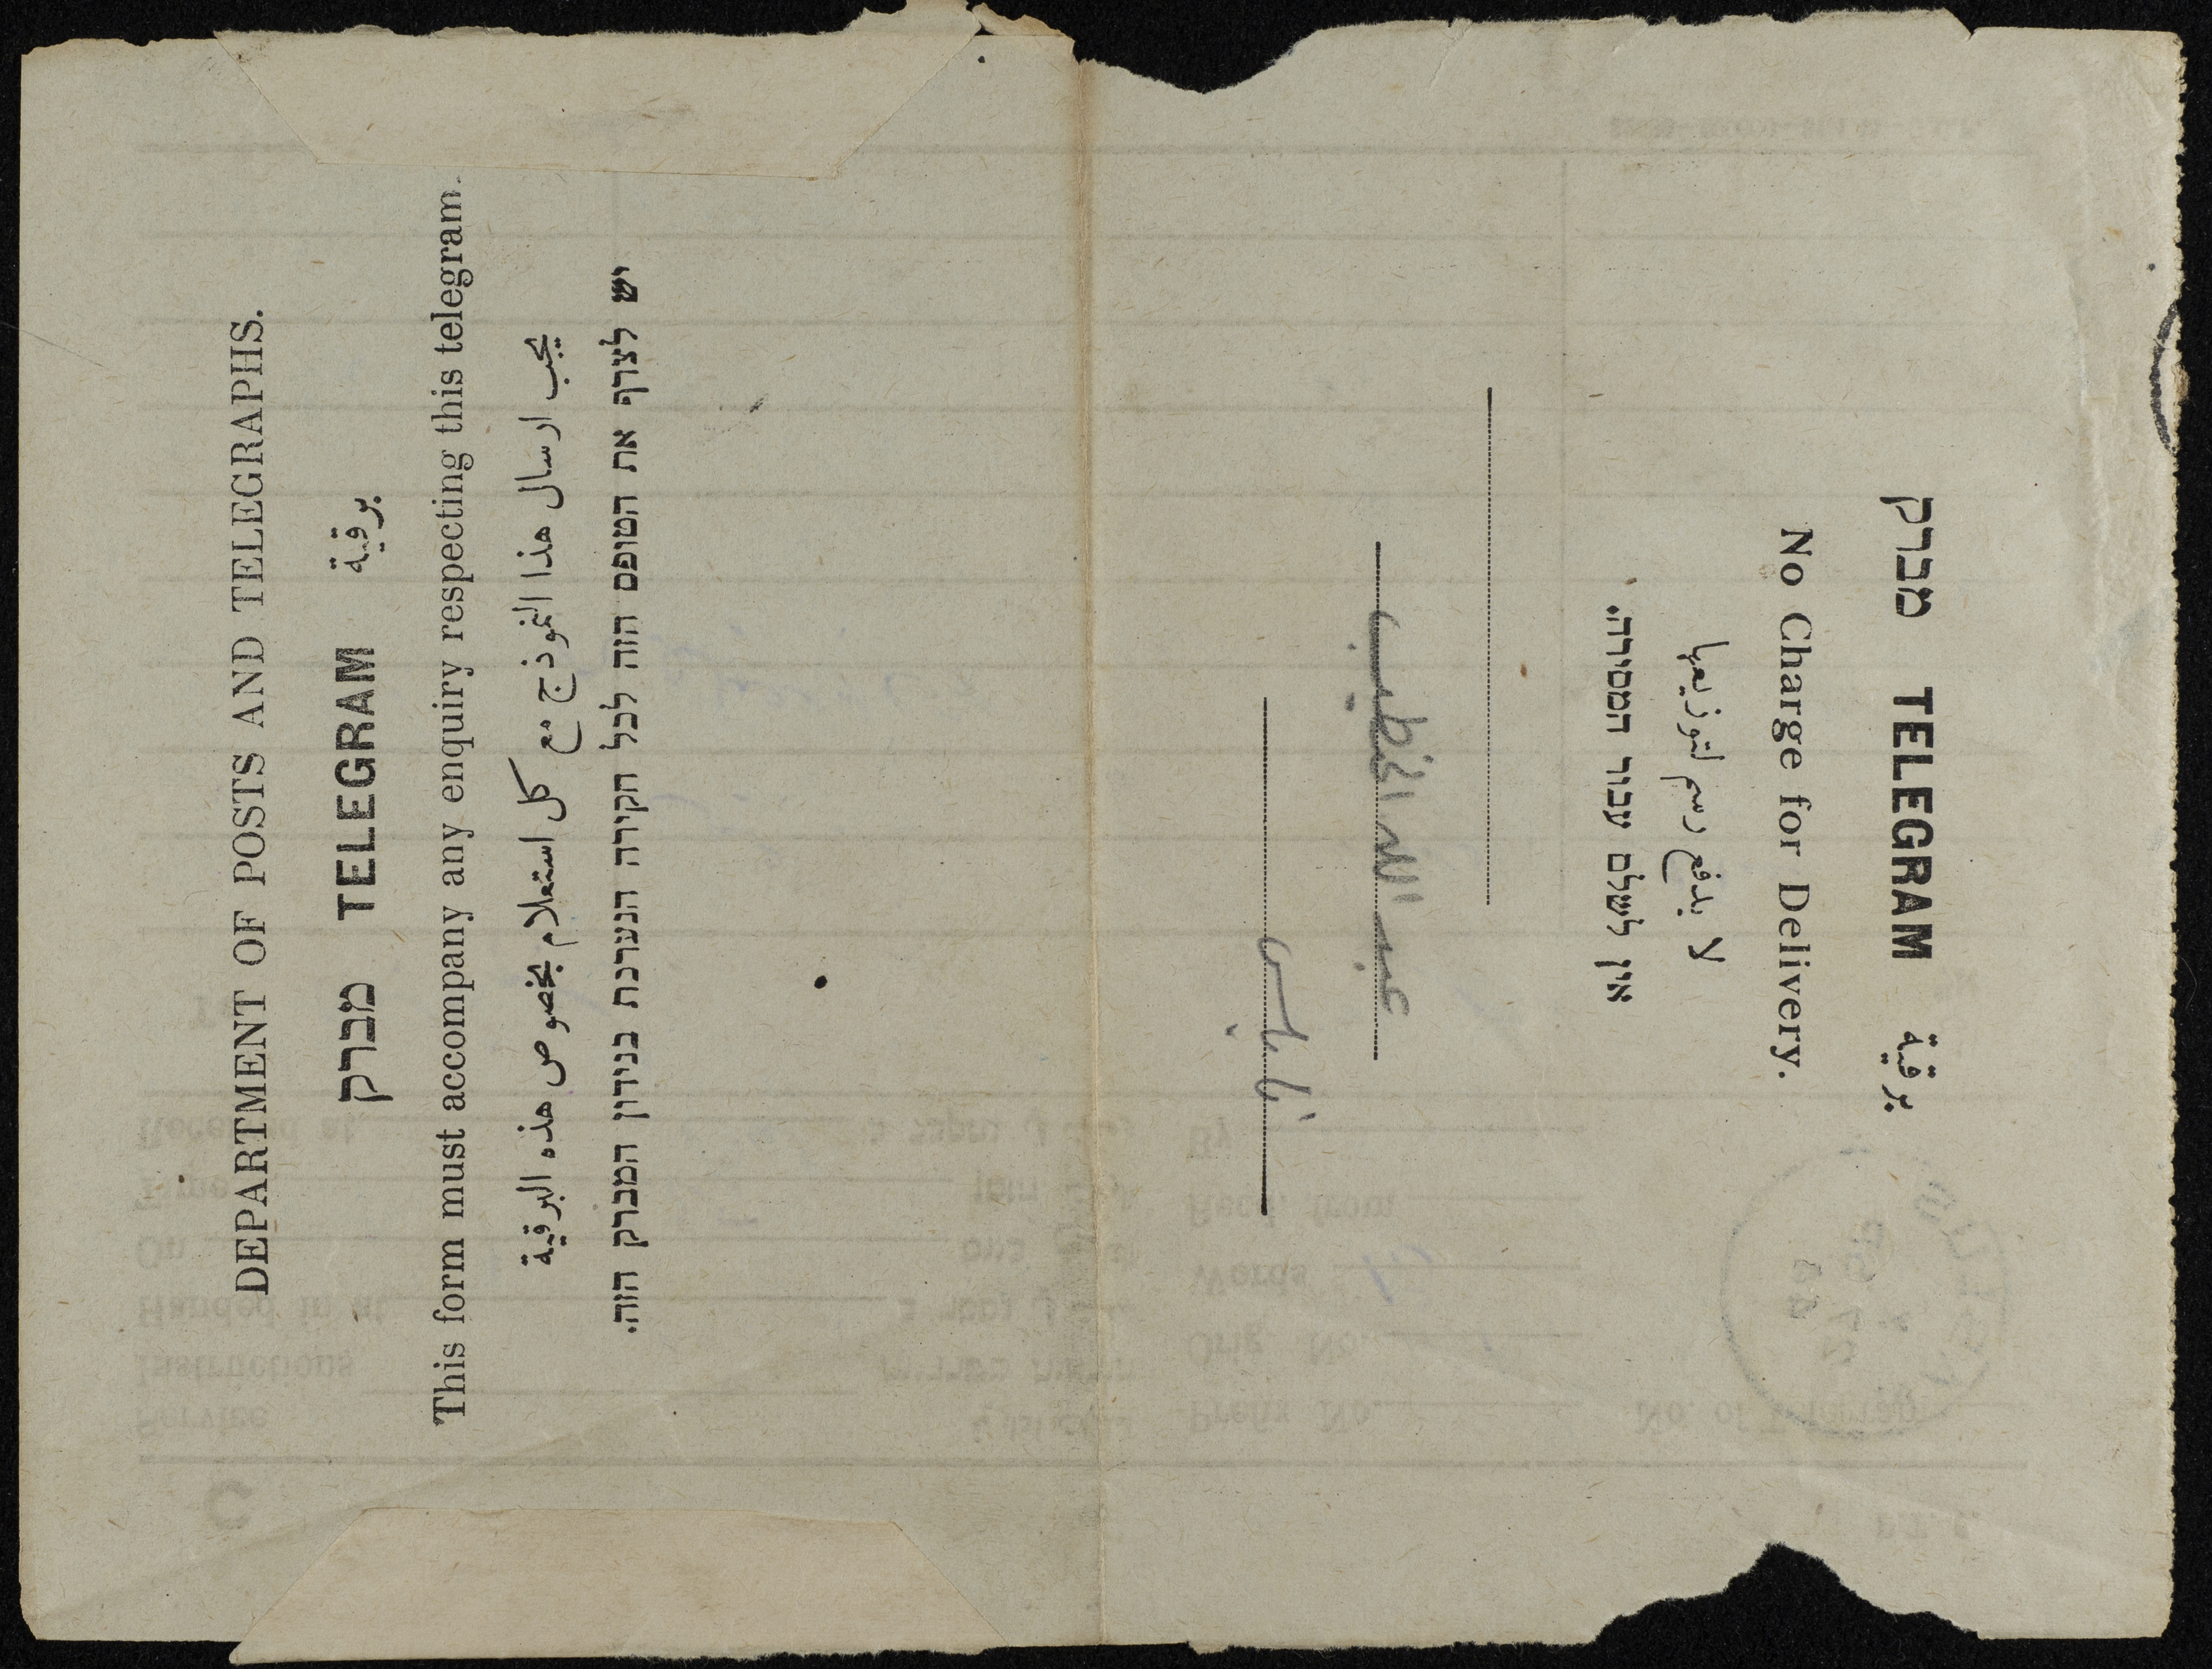 DEPARTMENT OF POSTS AND TELEGRAPHS.
מברק TELEGRAM برقية
This form must accompany any enquiry respecting this telegram.
يجب ارسال هذا النموذج مع كل استعلام بخصوص هذه البرقية
יש לצרף את הטופס הזה לכל חקירה הנערכת בנידון המברק הזה.
מברק TELEGRAM برقية
No Charge for Delivery.
لا يدفع رسم لتوزيعها
אין לשלם עבור המסירה.
عبد الله الخطيب
نابلس